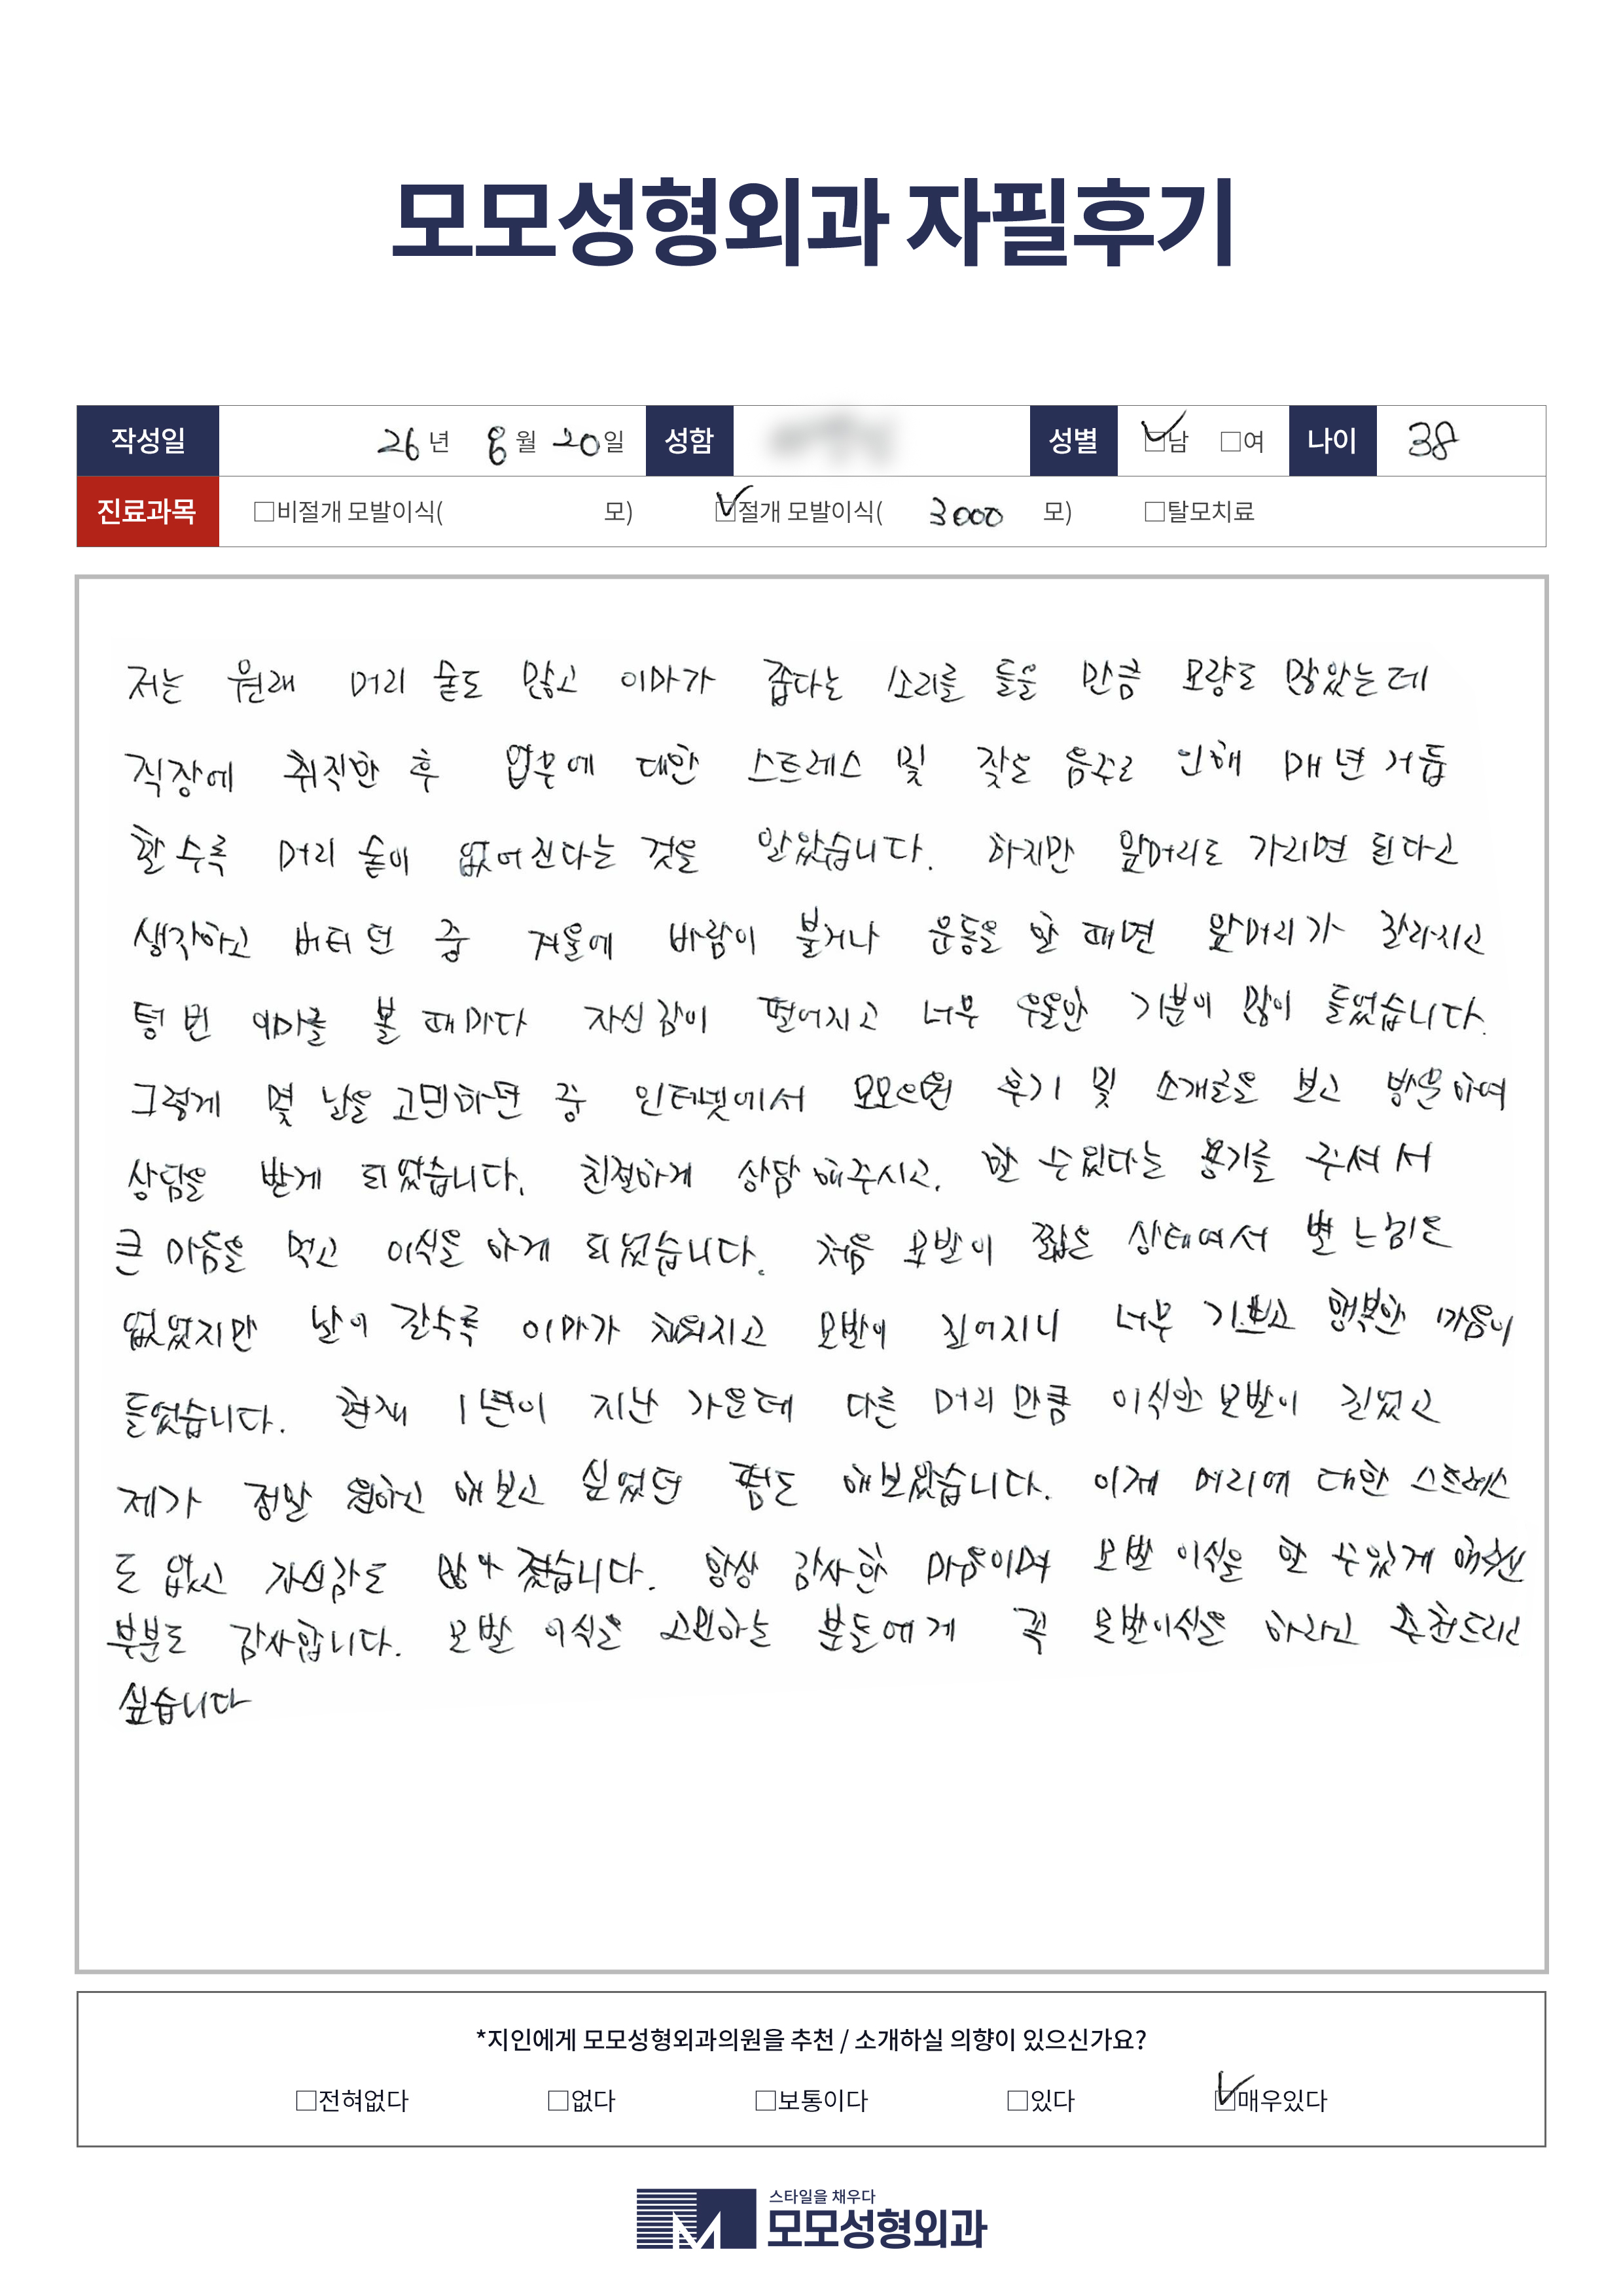 모모성형외과 자필후기
작성일 26년 8월 20일 성함 성별 ☑남 □여 나이 38
진료과목 □비절개 모발이식( 모) ☑절개 모발이식( 3000 모) □탈모치료
저는 원래 머리 숱도 많고 이마가 좁다는 소리를 들을 만큼 모량도 많았는데
직장에 취직한 후 업무에 대한 스트레스 및 잦은 음주로 인해 매년 거듭
할수록 머리 숱이 없어진다는 것을 알았습니다. 하지만 앞머리로 가리면 된다고
생각하고 버티던 중 겨울에 바람이 불거나 운동을 할 때면 앞머리가 갈라지고
텅 빈 이마를 볼 때마다 자신감이 떨어지고 너무 우울한 기분이 많이 들었습니다.
그렇게 몇 날을 고민하던 중 인터넷에서 모모의원 후기 및 소개글을 보고 방문하여
상담을 받게 되었습니다. 친절하게 상담해주시고, 할 수 있다는 용기를 주셔서
큰 마음을 먹고 이식을 하게 되었습니다. 처음 모발이 짧은 상태여서 별 느낌은
없었지만 날이 갈수록 이마가 채워지고 모발이 길어지니 너무 기쁘고 행복한 마음이
들었습니다. 현재 1년이 지난 가운데 다른 머리만큼 이식한 모발이 길었고
제가 정말 원하고 해보고 싶었던 펌도 해보았습니다. 이제 머리에 대한 스트레스
도 없고 자신감도 많아졌습니다. 항상 감사한 마음이며 모발 이식을 할 수 있게 해주신
부분도 감사합니다. 모발 이식을 고민하는 분들에게 꼭 모발이식을 하라고 추천드리고
싶습니다
*지인에게 모모성형외과의원을 추천 / 소개하실 의향이 있으신가요?
□전혀없다 □없다 □보통이다 □있다 ☑매우있다
스타일을 채우다
모모성형외과